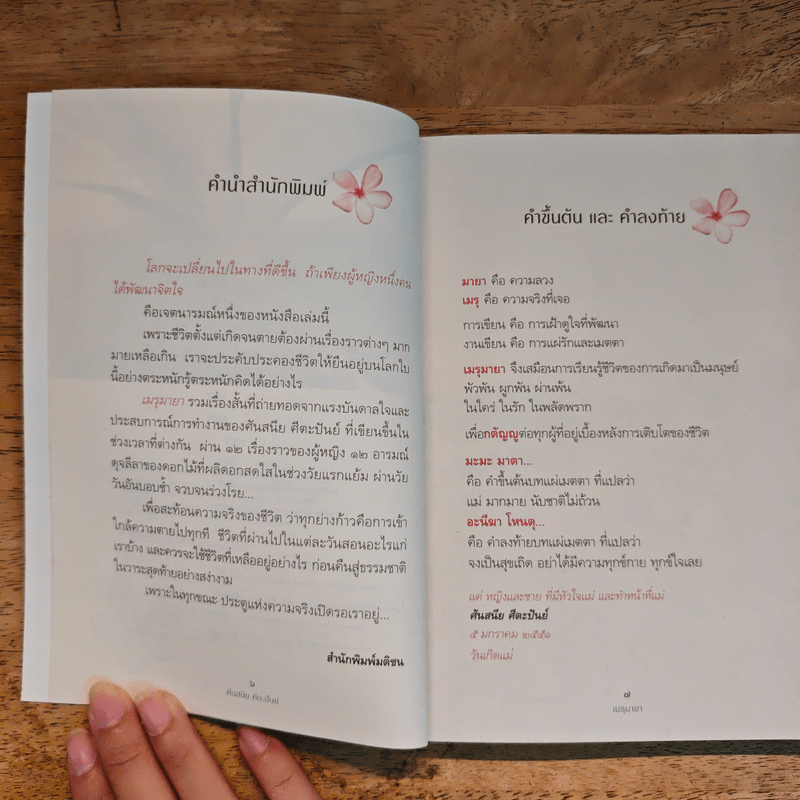 คำนำสำนักพิมพ์
โลกจะเปลี่ยนไปในทางที่ดีขึ้น ถ้าเพียงผู้หญิงหนึ่งคน
ได้พัฒนาจิตใจ
คือเจตนารมณ์หนึ่งของหนังสือเล่มนี้
เพราะชีวิตตั้งแต่เกิดจนตายต้องผ่านเรื่องราวต่างๆ มาก
มายเหลือเกิน เราจะประคับประคองชีวิตให้ยืนอยู่บนโลกใบ
นี้อย่างตระหนักรู้ตระหนักคิดได้อย่างไร
เมรุมายา รวมเรื่องสั้นที่ถ่ายทอดจากแรงบันดาลใจและ
ประสบการณ์การทำงานของศันสนีย ศีตะปันย์ ที่เขียนขึ้นใน
ช่วงเวลาที่ต่างกัน ผ่าน ๑๒ เรื่องราวของผู้หญิง ๑๒ อารมณ์
ดุจลีลาของดอกไม้ที่ผลิดอกสดใสในช่วงวัยแรกแย้ม ผ่านวัย
วันอันบอบช้ำ จวบจนร่วงโรย...
เพื่อสะท้อนความจริงของชีวิต ว่าทุกย่างก้าวคือการเข้า
ใกล้ความตายไปทุกที ชีวิตที่ผ่านไปในแต่ละวันสอนอะไรแก่
เราบ้าง และควรจะใช้ชีวิตที่เหลืออยู่อย่างไร ก่อนคืนสู่ธรรมชาติ
ในวาระสุดท้ายอย่างสง่างาม
เพราะในทุกขณะ ประตูแห่งความจริงเปิดรอเราอยู่...
สำนักพิมพ์มติชน
๖
ศันสนีย ศีตะปันย์
คำขึ้นต้น และ คำลงท้าย
มายา คือ ความลวง
เมรุ คือ ความจริงที่เจอ
การเขียน คือ การเฝ้าดูใจที่พัฒนา
งานเขียน คือ การแผ่รักและเมตตา
เมรุมายา จึงเสมือนการเรียนรู้ชีวิตของการเกิดมาเป็นมนุษย์
พัวพัน ผูกพัน ผ่านพ้น
ในใคร่ ในรัก ในพลัดพราก
เพื่อกตัญญูต่อทุกผู้ที่อยู่เบื้องหลังการเติบโตของชีวิต
มะมะ มาตา...
คือ คำขึ้นต้นบทแผ่เมตตา ที่แปลว่า
แม่ มากมาย นับชาติไม่ถ้วน
อะนีฆา โหนตุ...
คือ คำลงท้ายบทแผ่เมตตา ที่แปลว่า
จงเป็นสุขเถิด อย่าได้มีความทุกข์กาย ทุกข์ใจเลย
แด่ หญิงและชาย ที่มีหัวใจแม่ และทำหน้าที่แม่
ศันสนีย ศีตะปันย์
๕ มกราคม ๒๕๕๑
วันเกิดแม่
๗
เมรุมายา